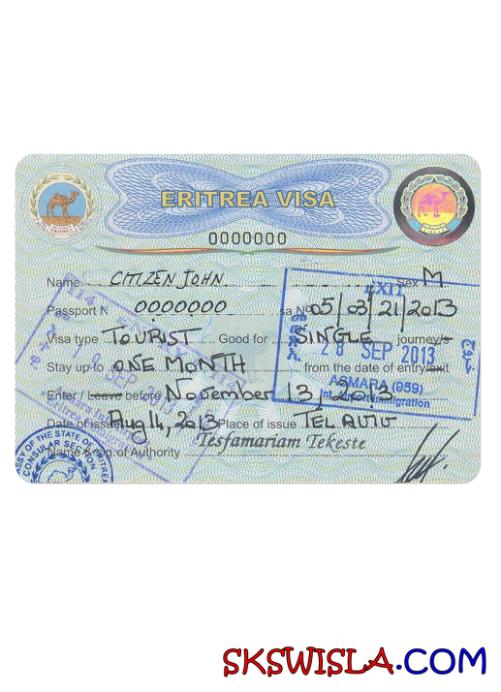 ERITREA VISA
0000000
Name CITIZEN JOHN Sex M
Passport N 0000000 isa No 05/03/21/2013
EXIT
Visa type TOURIST Good for SINGLE journey/s
28 SEP 2013
Stay up to ONE MONTH from the date of entry/exit
ASMARA (959)
Enter / Leave before November 13, 2013
Immigration
Date of issue Aug 14, 2013 Place of issue TEL AVIV
Tesfamariam Tekeste
Name & sig. of Authority
ASSY OF THE STATE OF ERITREA
CONSULAR SECTION
SKSWISLA.COM